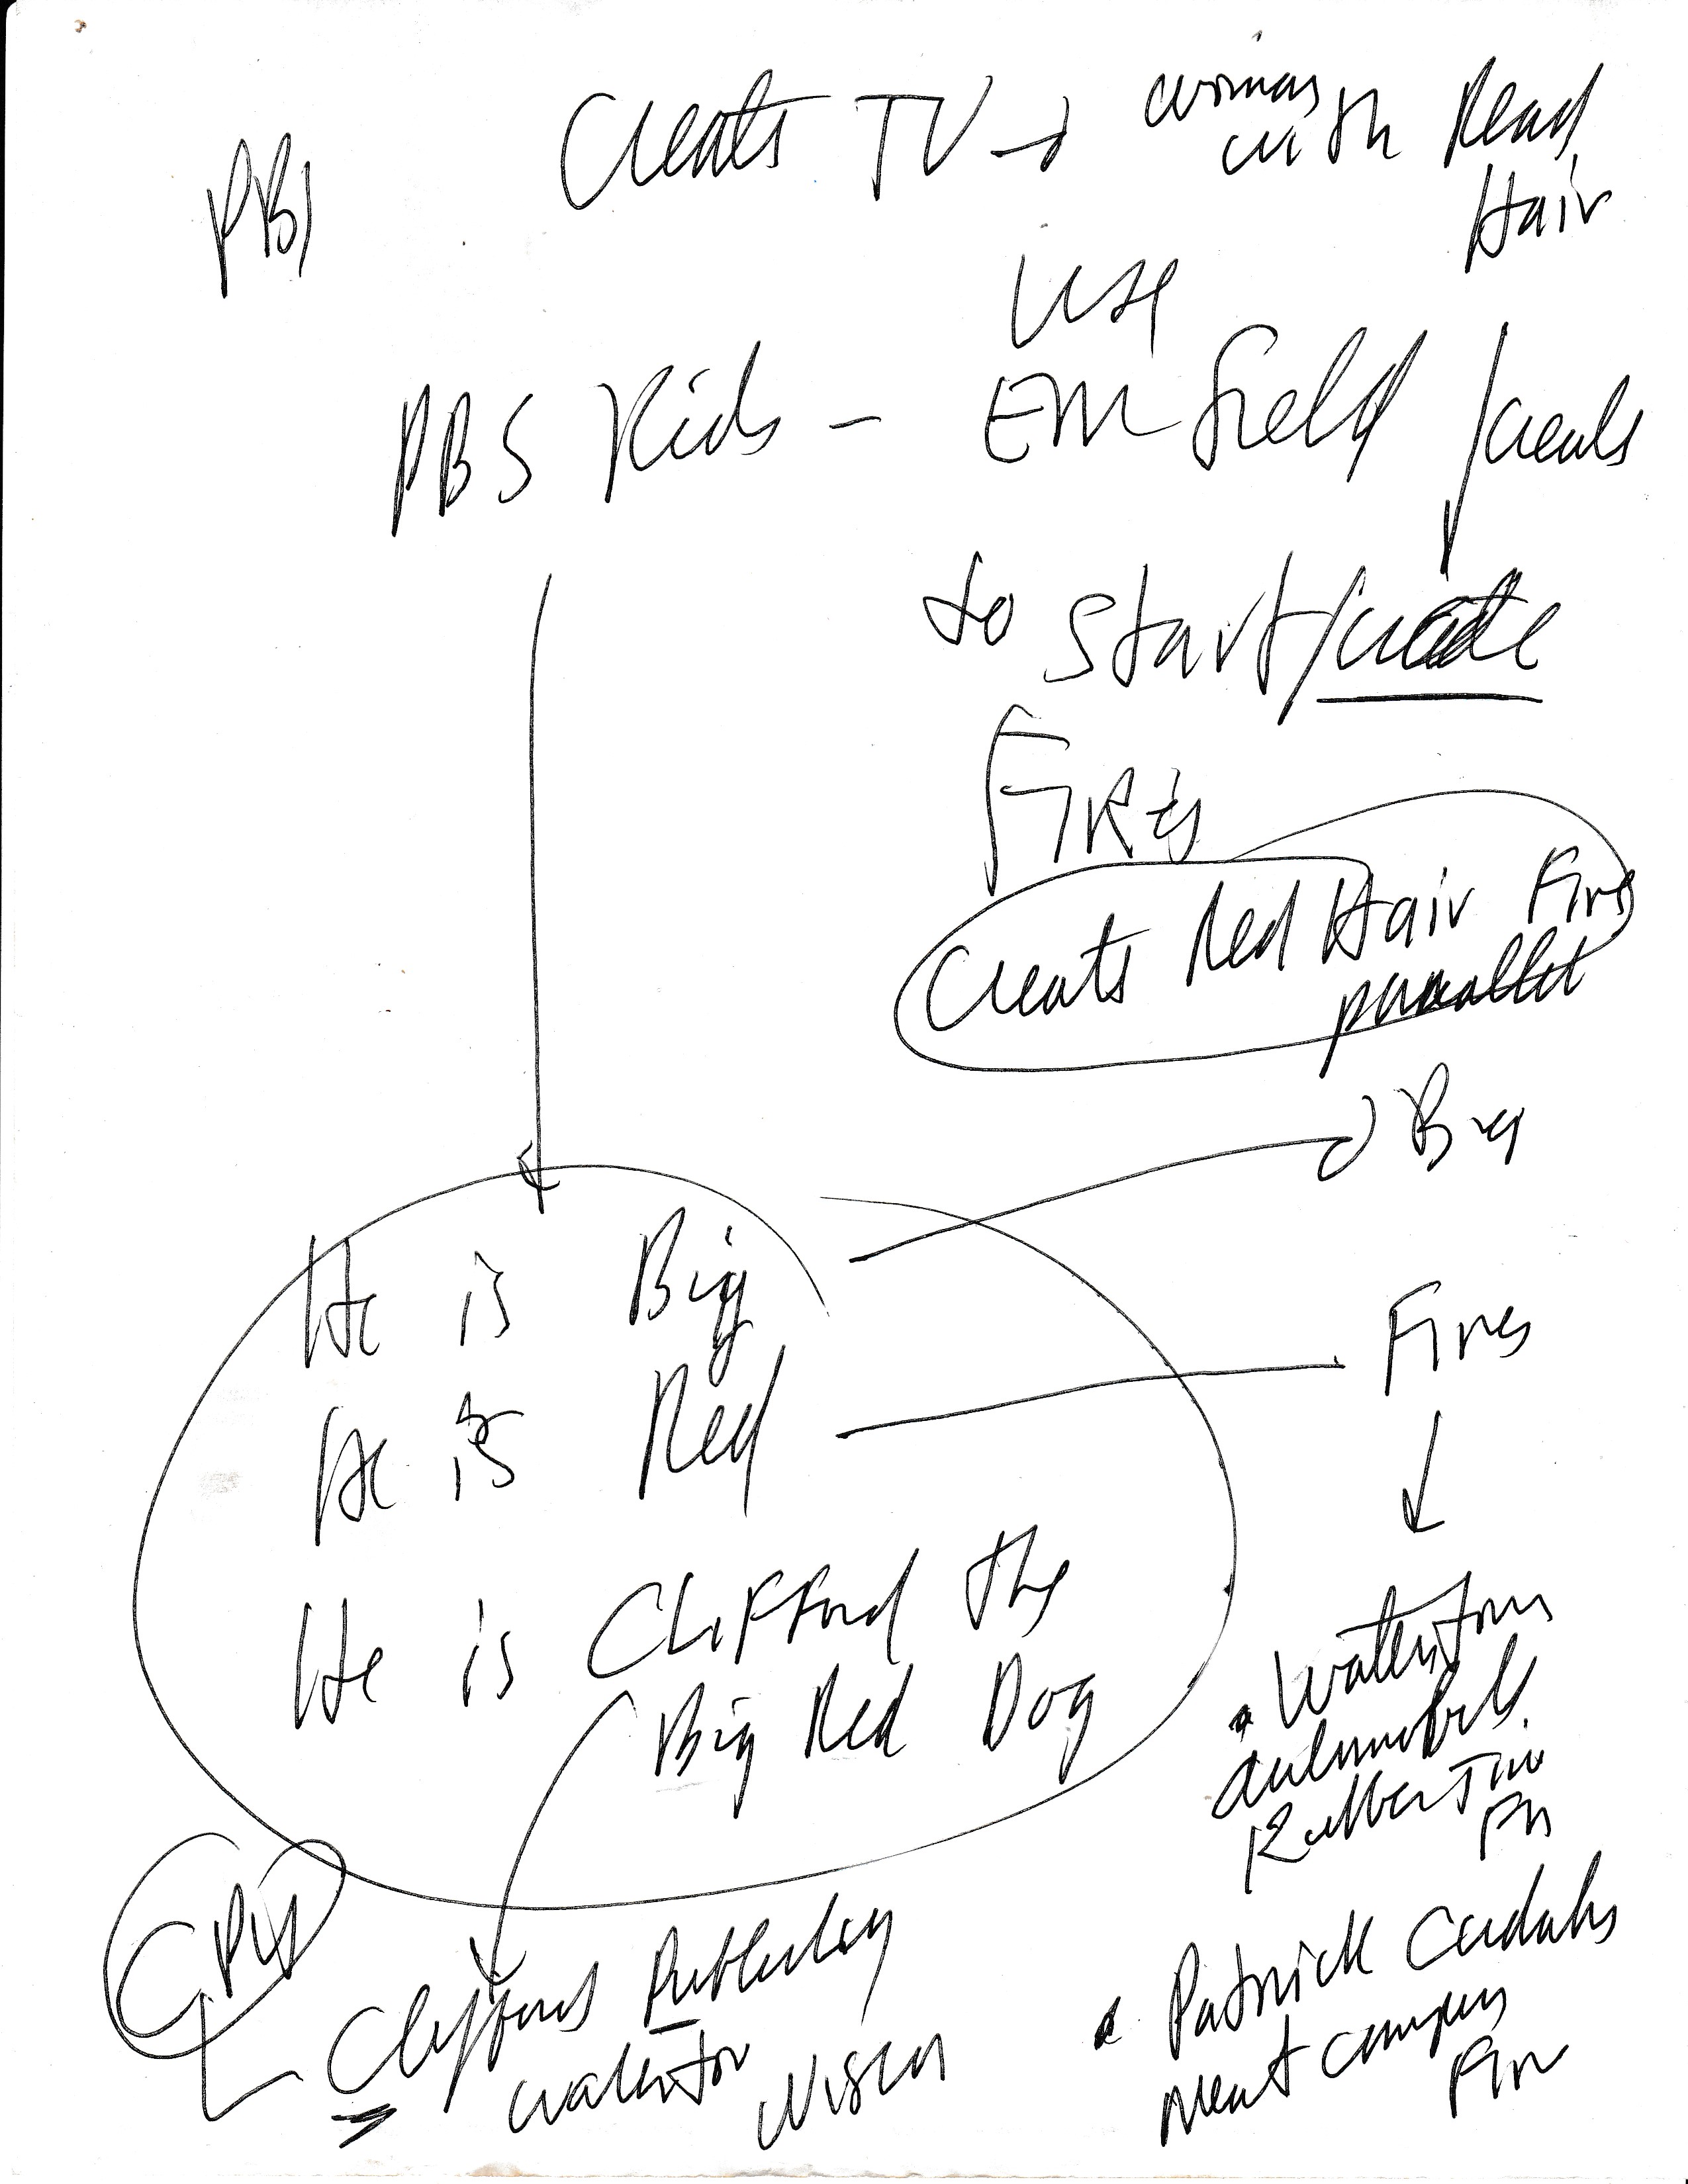 PBS Creats TV → woman
with Read
Hair
Use
PBS Kids - EM field / creats
to start/create
FIREs
Creats Red Hair Fire
parallel
Big
He is Big
He is Red
Fires
He is Clifford the
Big Red Dog
• Watertown
automobile
Rubber Tire
Fire
CPW
Cliffords Publishing
Watertown Wiscon
• Patrick Cudahy
Meat company
Fire